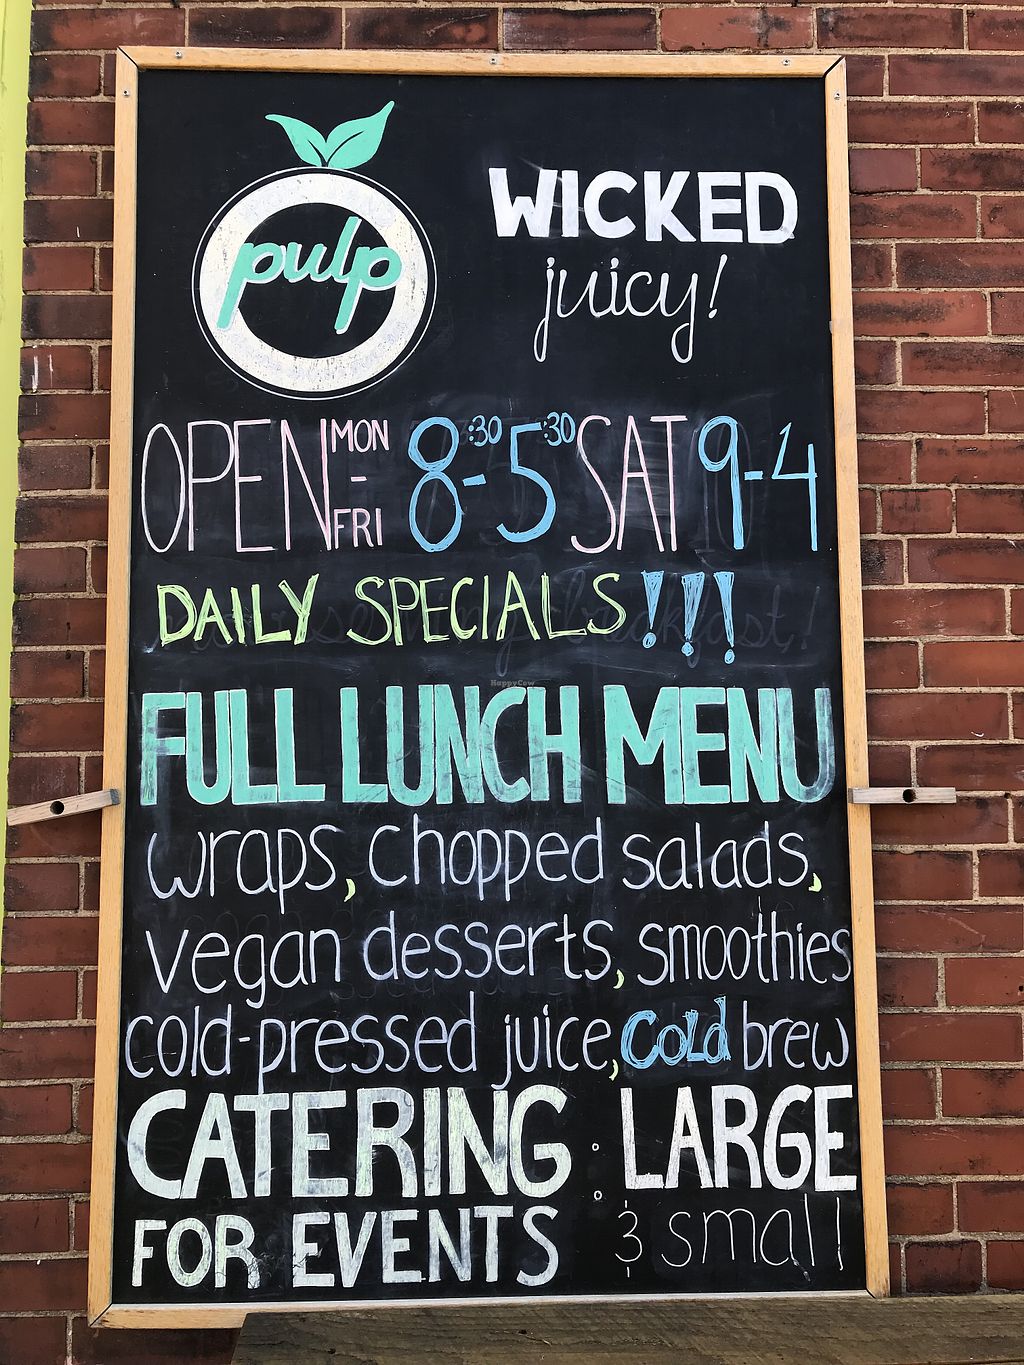 pulp
WICKED
juicy!
OPEN MON - FRI 8:30-5:30 SAT 9-4
DAILY SPECIALS!!!
HappyCow
FULL LUNCH MENU
wraps, chopped salads,
vegan desserts, smoothies
cold-pressed juice, cold brew
CATERING : LARGE
FOR EVENTS & small